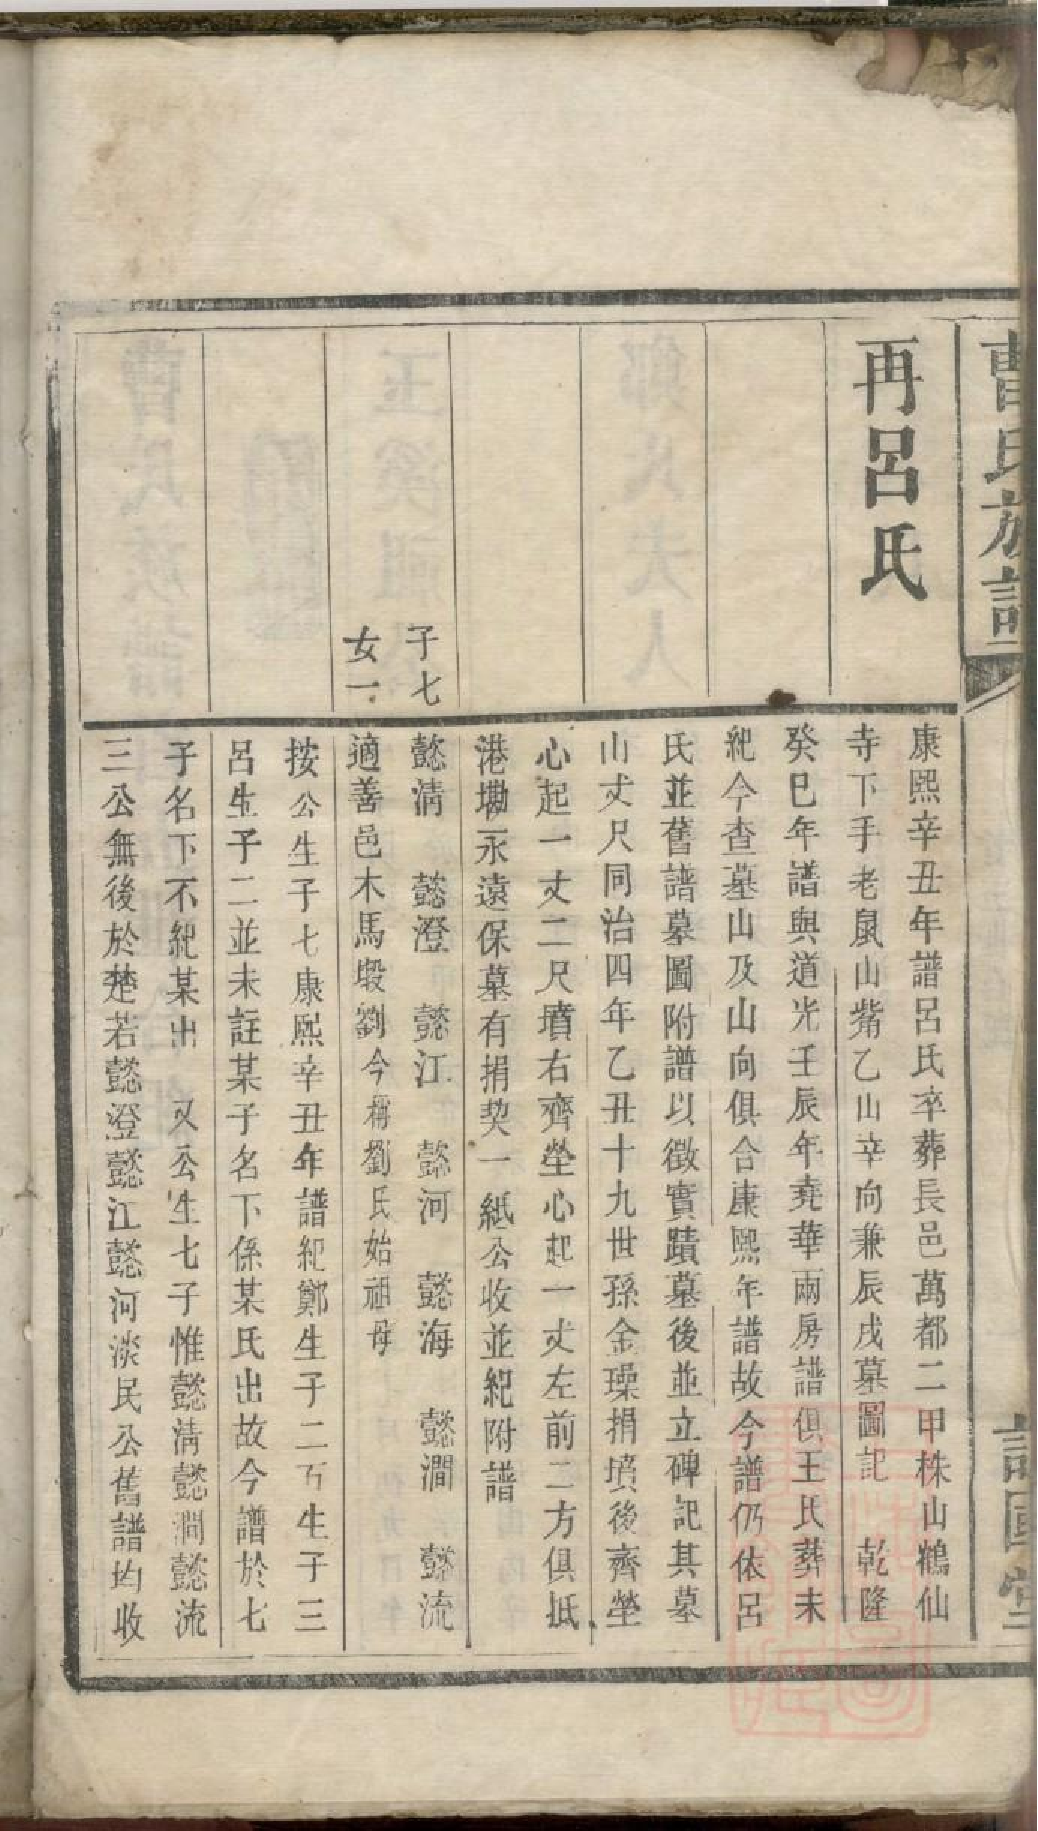 曹氏族譜
再呂氏
康熙辛丑年譜呂氏卒葬長邑萬都二甲株山鶴仙
寺下手老鼠山觜乙山辛向兼辰戌墓圖記　乾隆
癸巳年譜與道光壬辰年堯華兩房譜俱王氏葬未
紀今查墓山及山向俱合康熙年譜故今譜仍依呂
氏並舊譜墓圖附譜以徵實蹟墓後並立碑記其墓
山丈尺同治四年乙丑十九世孫金璪捐墳後齊塋
心起一丈二尺墳右齊塋心起一丈左前二方俱抵
港墈永遠保墓有捐契一紙公收並紀附譜
子七
懿淸　懿澄　懿江　懿河　懿海　懿澗　懿流
女一
適善邑木馬塅劉今稱劉氏始祖母
按公生子七康熙辛丑年譜紀鄭生子二万生子三
呂生子二並未註某子名下係某氏出故今譜於七
子名下不紀某出　又公生七子惟懿淸懿澗懿流
三公無後於楚若懿澄懿江懿河淡民公舊譜均收